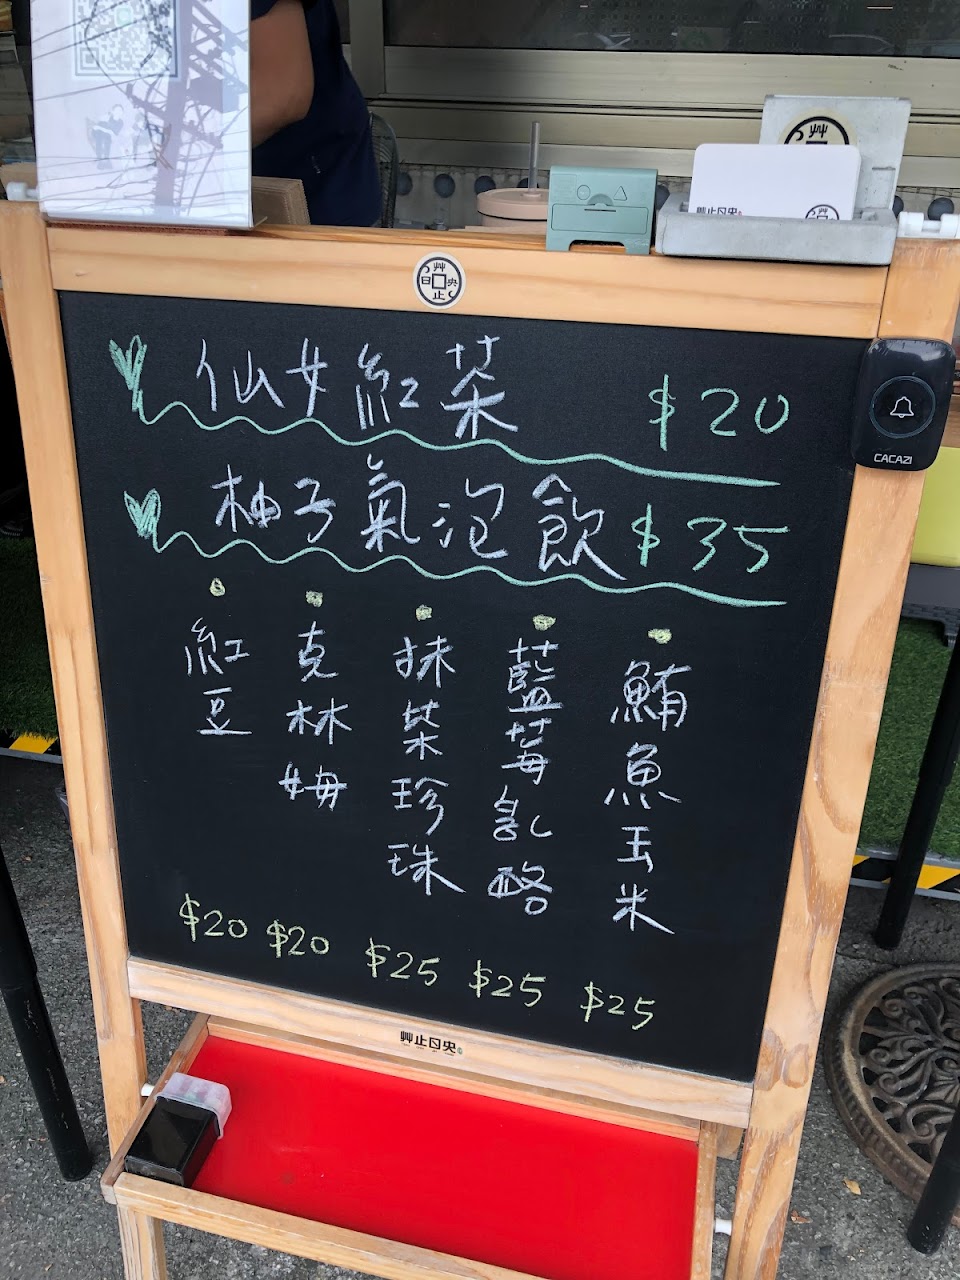 仙女紅茶 $20
柚子氣泡飲 $35
鮪魚玉米 $25
藍莓乳酪 $25
抹茶珍珠 $25
克林姆 $20
紅豆 $20
CACAZI
艸止日央
艸止日央
艸止日央